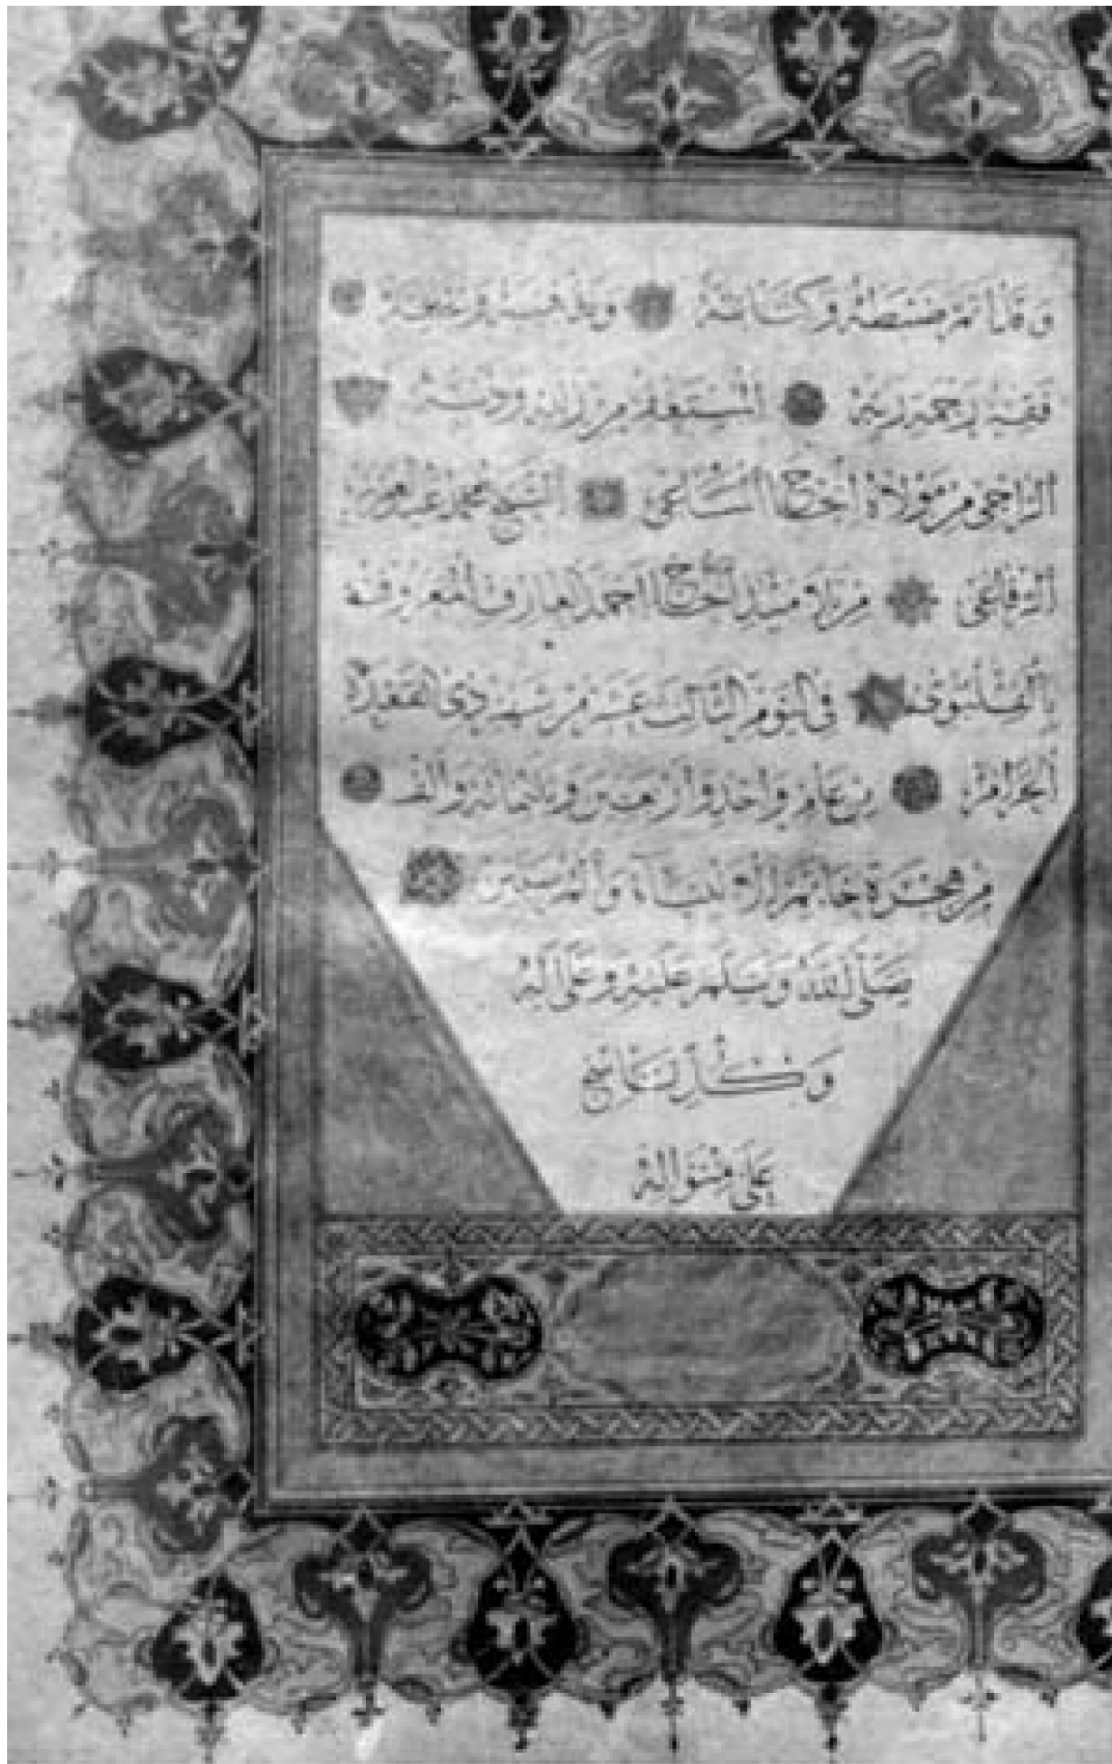 وقد تم ضبطه وكتابته وتذهيبه
فقير رحمة ربه المستغفر من زلله وذنبه
الراجي من مولاه الشيخ محمد عبد العزيز
الرفاعي من تلاميذ الحاج احمد العارف المعروف
بالفلبوي في اليوم الثالث عشر من شهر ذي القعدة
الحرام من عام واحد واربعين وثلثمائة والف
من هجرة خاتم الانبياء والمرسلين
صلى الله وسلم عليه وعلى اله
وكل ناسج
على منواله